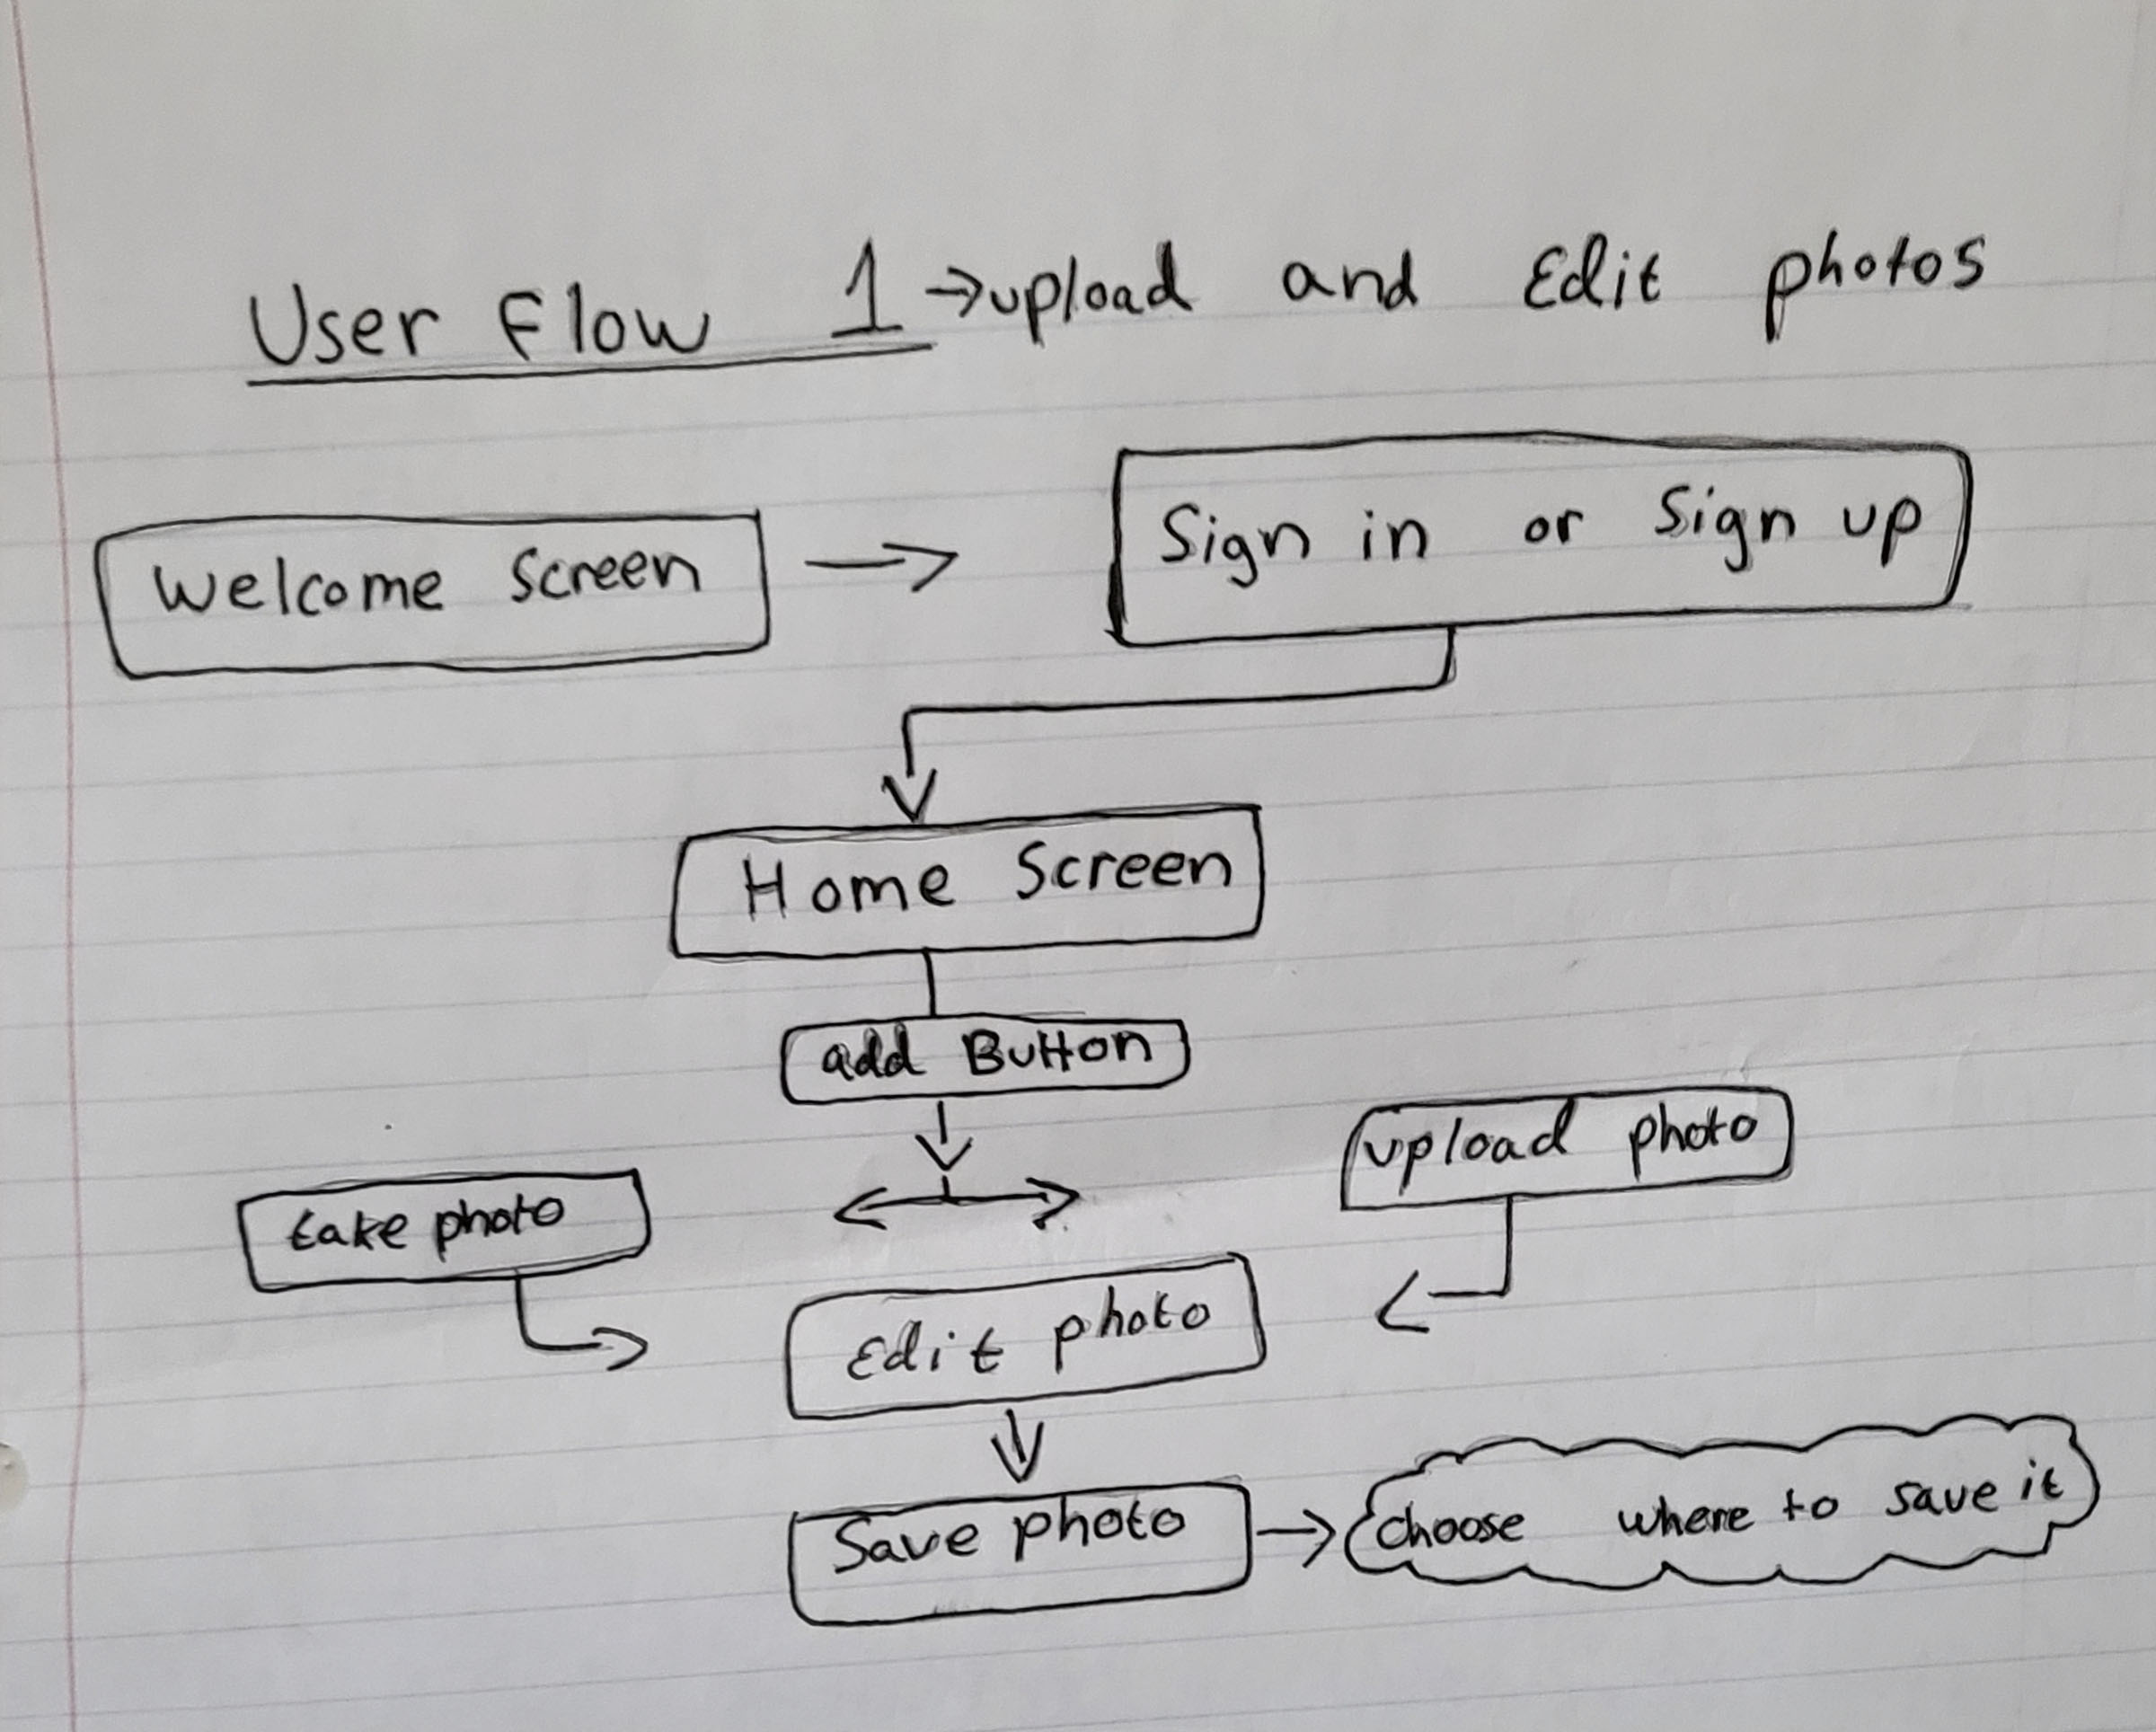 User Flow 1 →upload and Edit photos
Welcome Screen → Sign in or Sign up
Home Screen
add Button
upload photo
take photo
Edit photo
Save photo → choose where to save it